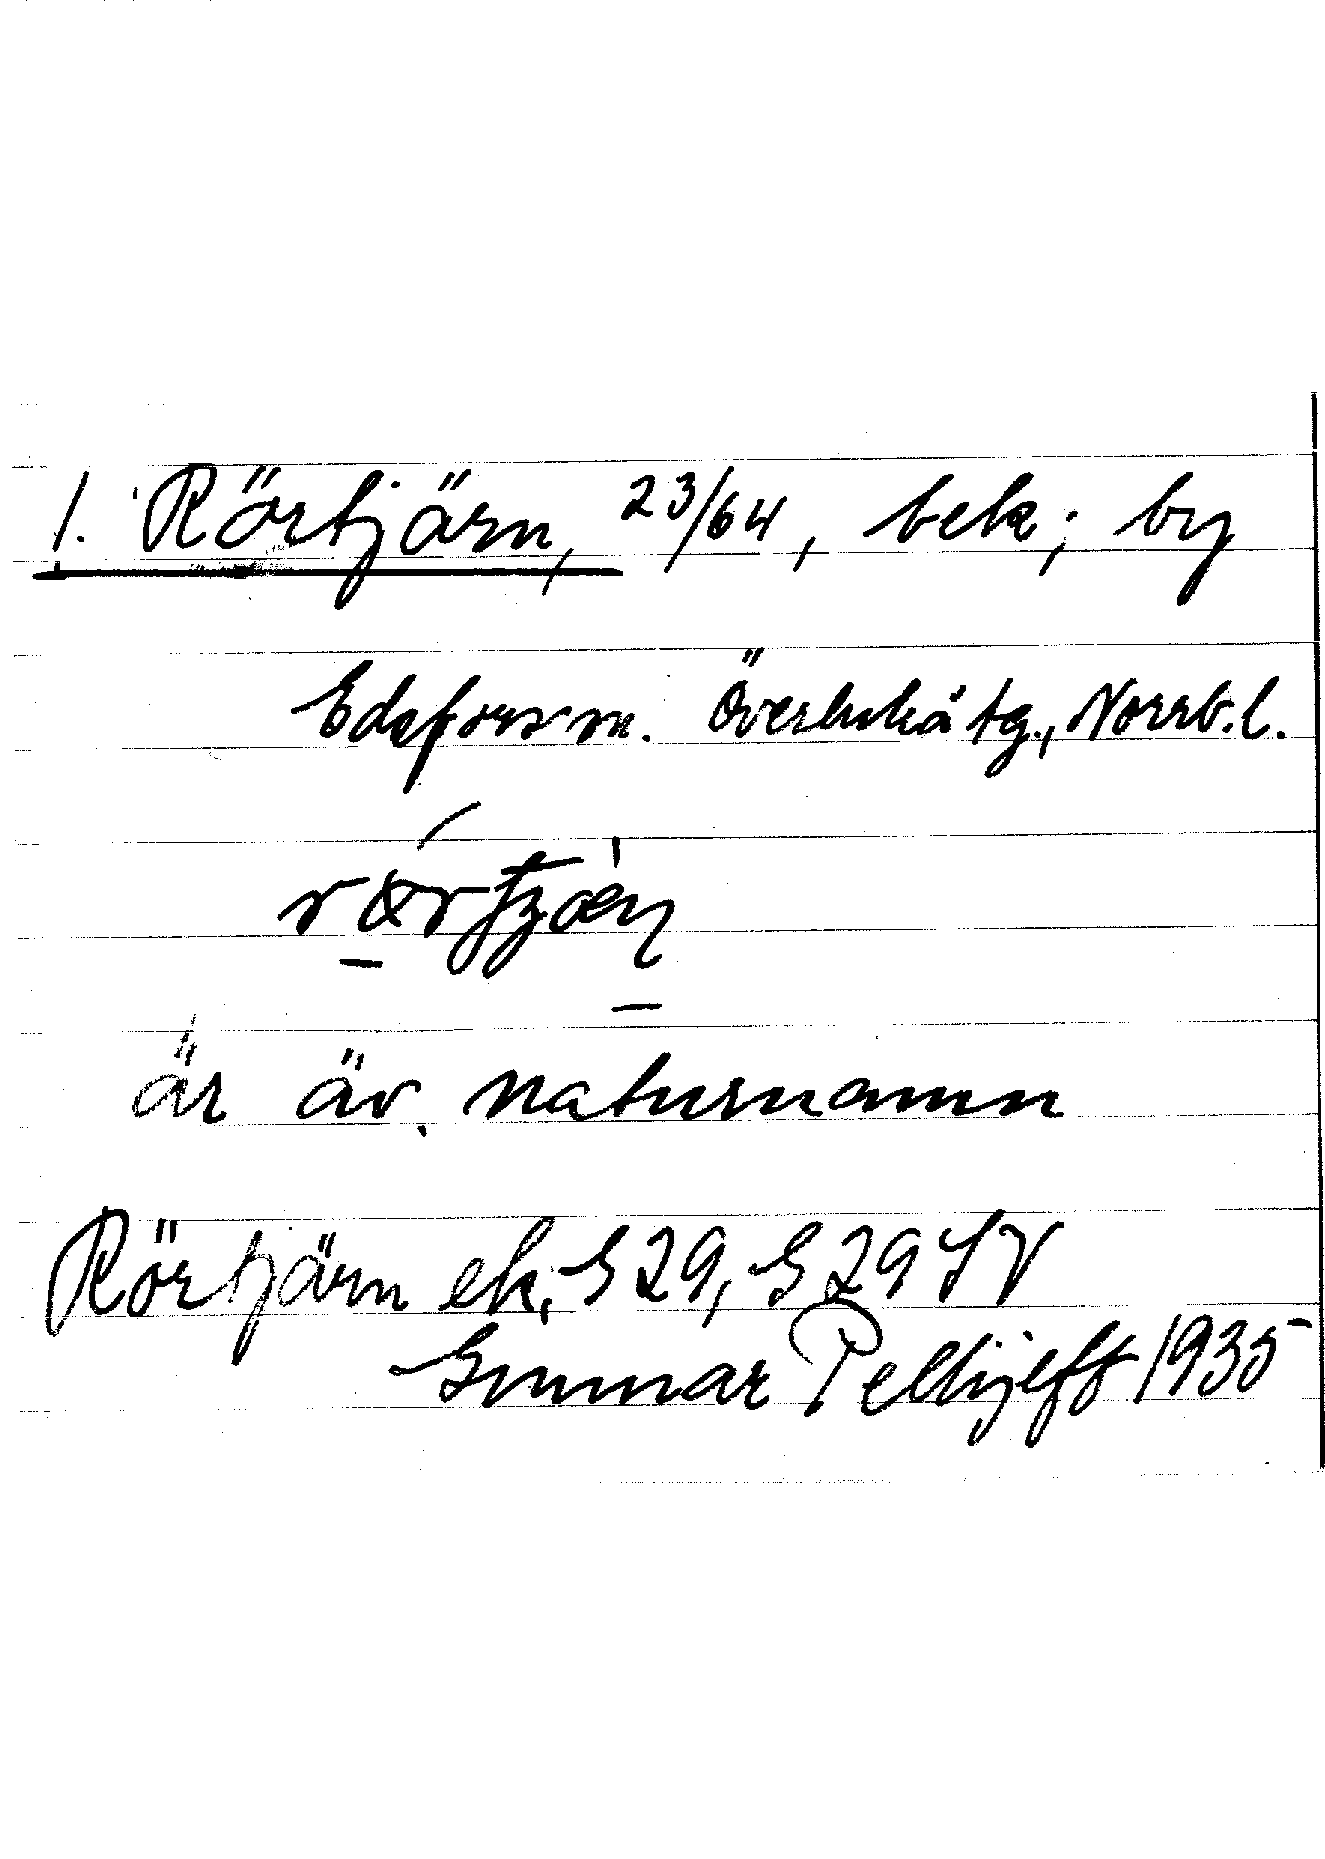 1. Rörtjärn, 23/64, bek; by
Edefors sn. Överlukå tg., Norrb. l.
är äv. naturnamn
Rörtjärn ek, G 29, G 29 SV
Gunnar Pellijeff 1935